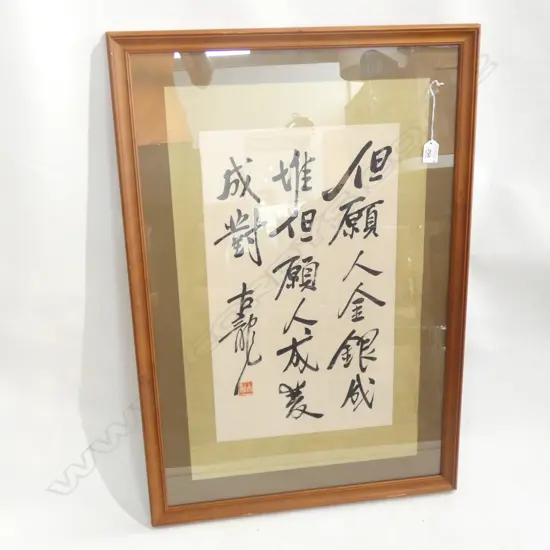 但願人金銀成
堆但願人成雙
成對
古龍